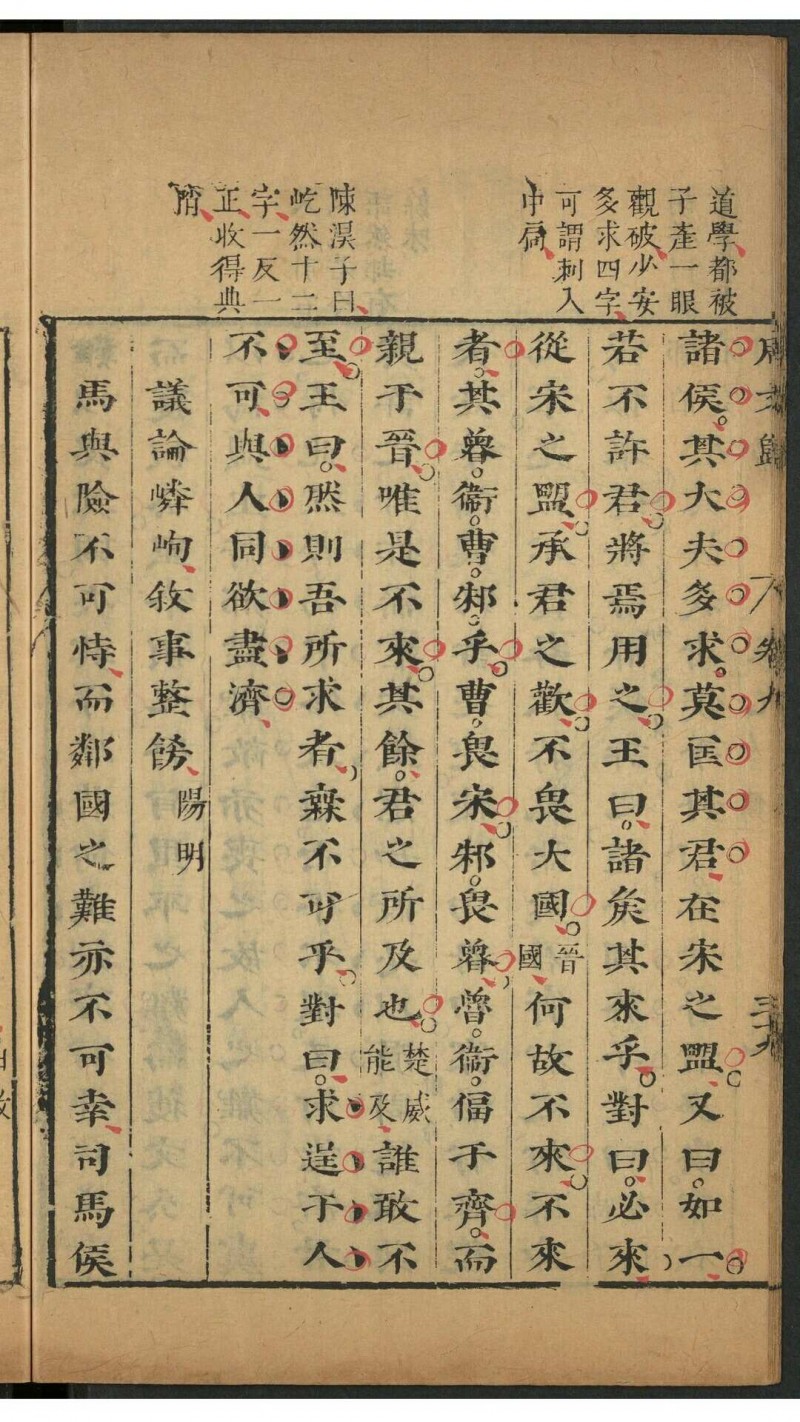 周文歸 卷九 三九
道學都被
子產一眼
觀破少安
多求四字
可謂刺入
中扃
陳淏子曰
屹然十二
字一反一
正收得典
諸侯其大夫多求莫匡其君在宋之盟又曰如一
若不許君將焉用之王曰諸矦其來乎對曰必來
從宋之盟承君之歡不畏大國晉國何故不來不來
者其魯衞曹邾乎曹畏宋邾畏魯魯衞偪于齊而
親于晉唯是不來其餘君之所及也楚威能及誰敢不
至王曰然則吾所求者無不可乎對曰求逞于人
不可與人同欲盡濟
議論嶙峋敘事整餙陽明
馬與險不可恃而鄰國之難亦不可幸司馬侯